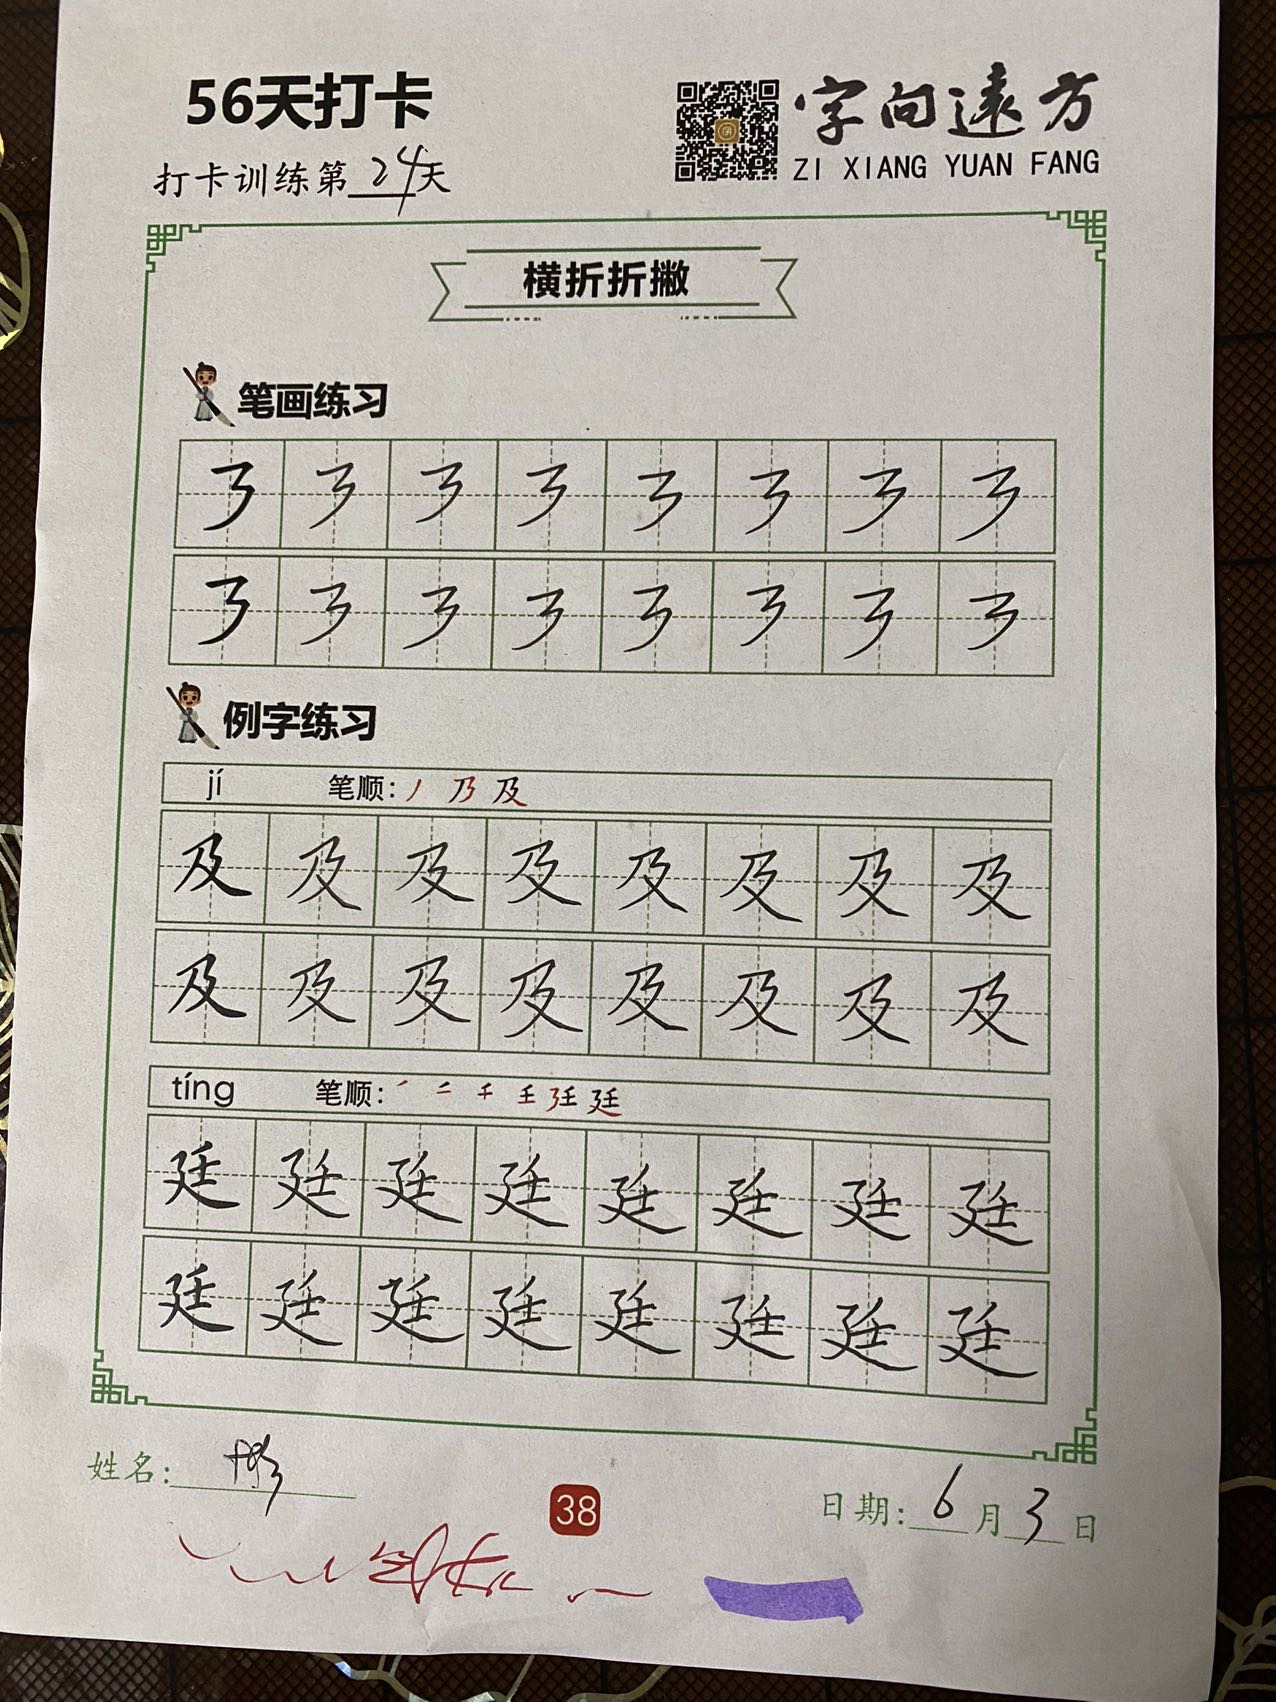 56天打卡
字向遠方
打卡训练第24天
ZI XIANG YUAN FANG
横折折撇
笔画练习
㇋ ㇋ ㇋ ㇋ ㇋ ㇋ ㇋ ㇋
㇋ ㇋ ㇋ ㇋ ㇋ ㇋ ㇋ ㇋
例字练习
jí 笔顺: 丿 乃 及
及 及 及 及 及 及 及 及
及 及 及 及 及 及 及 及
tíng 笔顺: ㇒ 二 千 壬 廷 廷
廷 廷 廷 廷 廷 廷 廷 廷
廷 廷 廷 廷 廷 廷 廷 廷
姓名:
38
日期: 6月3日